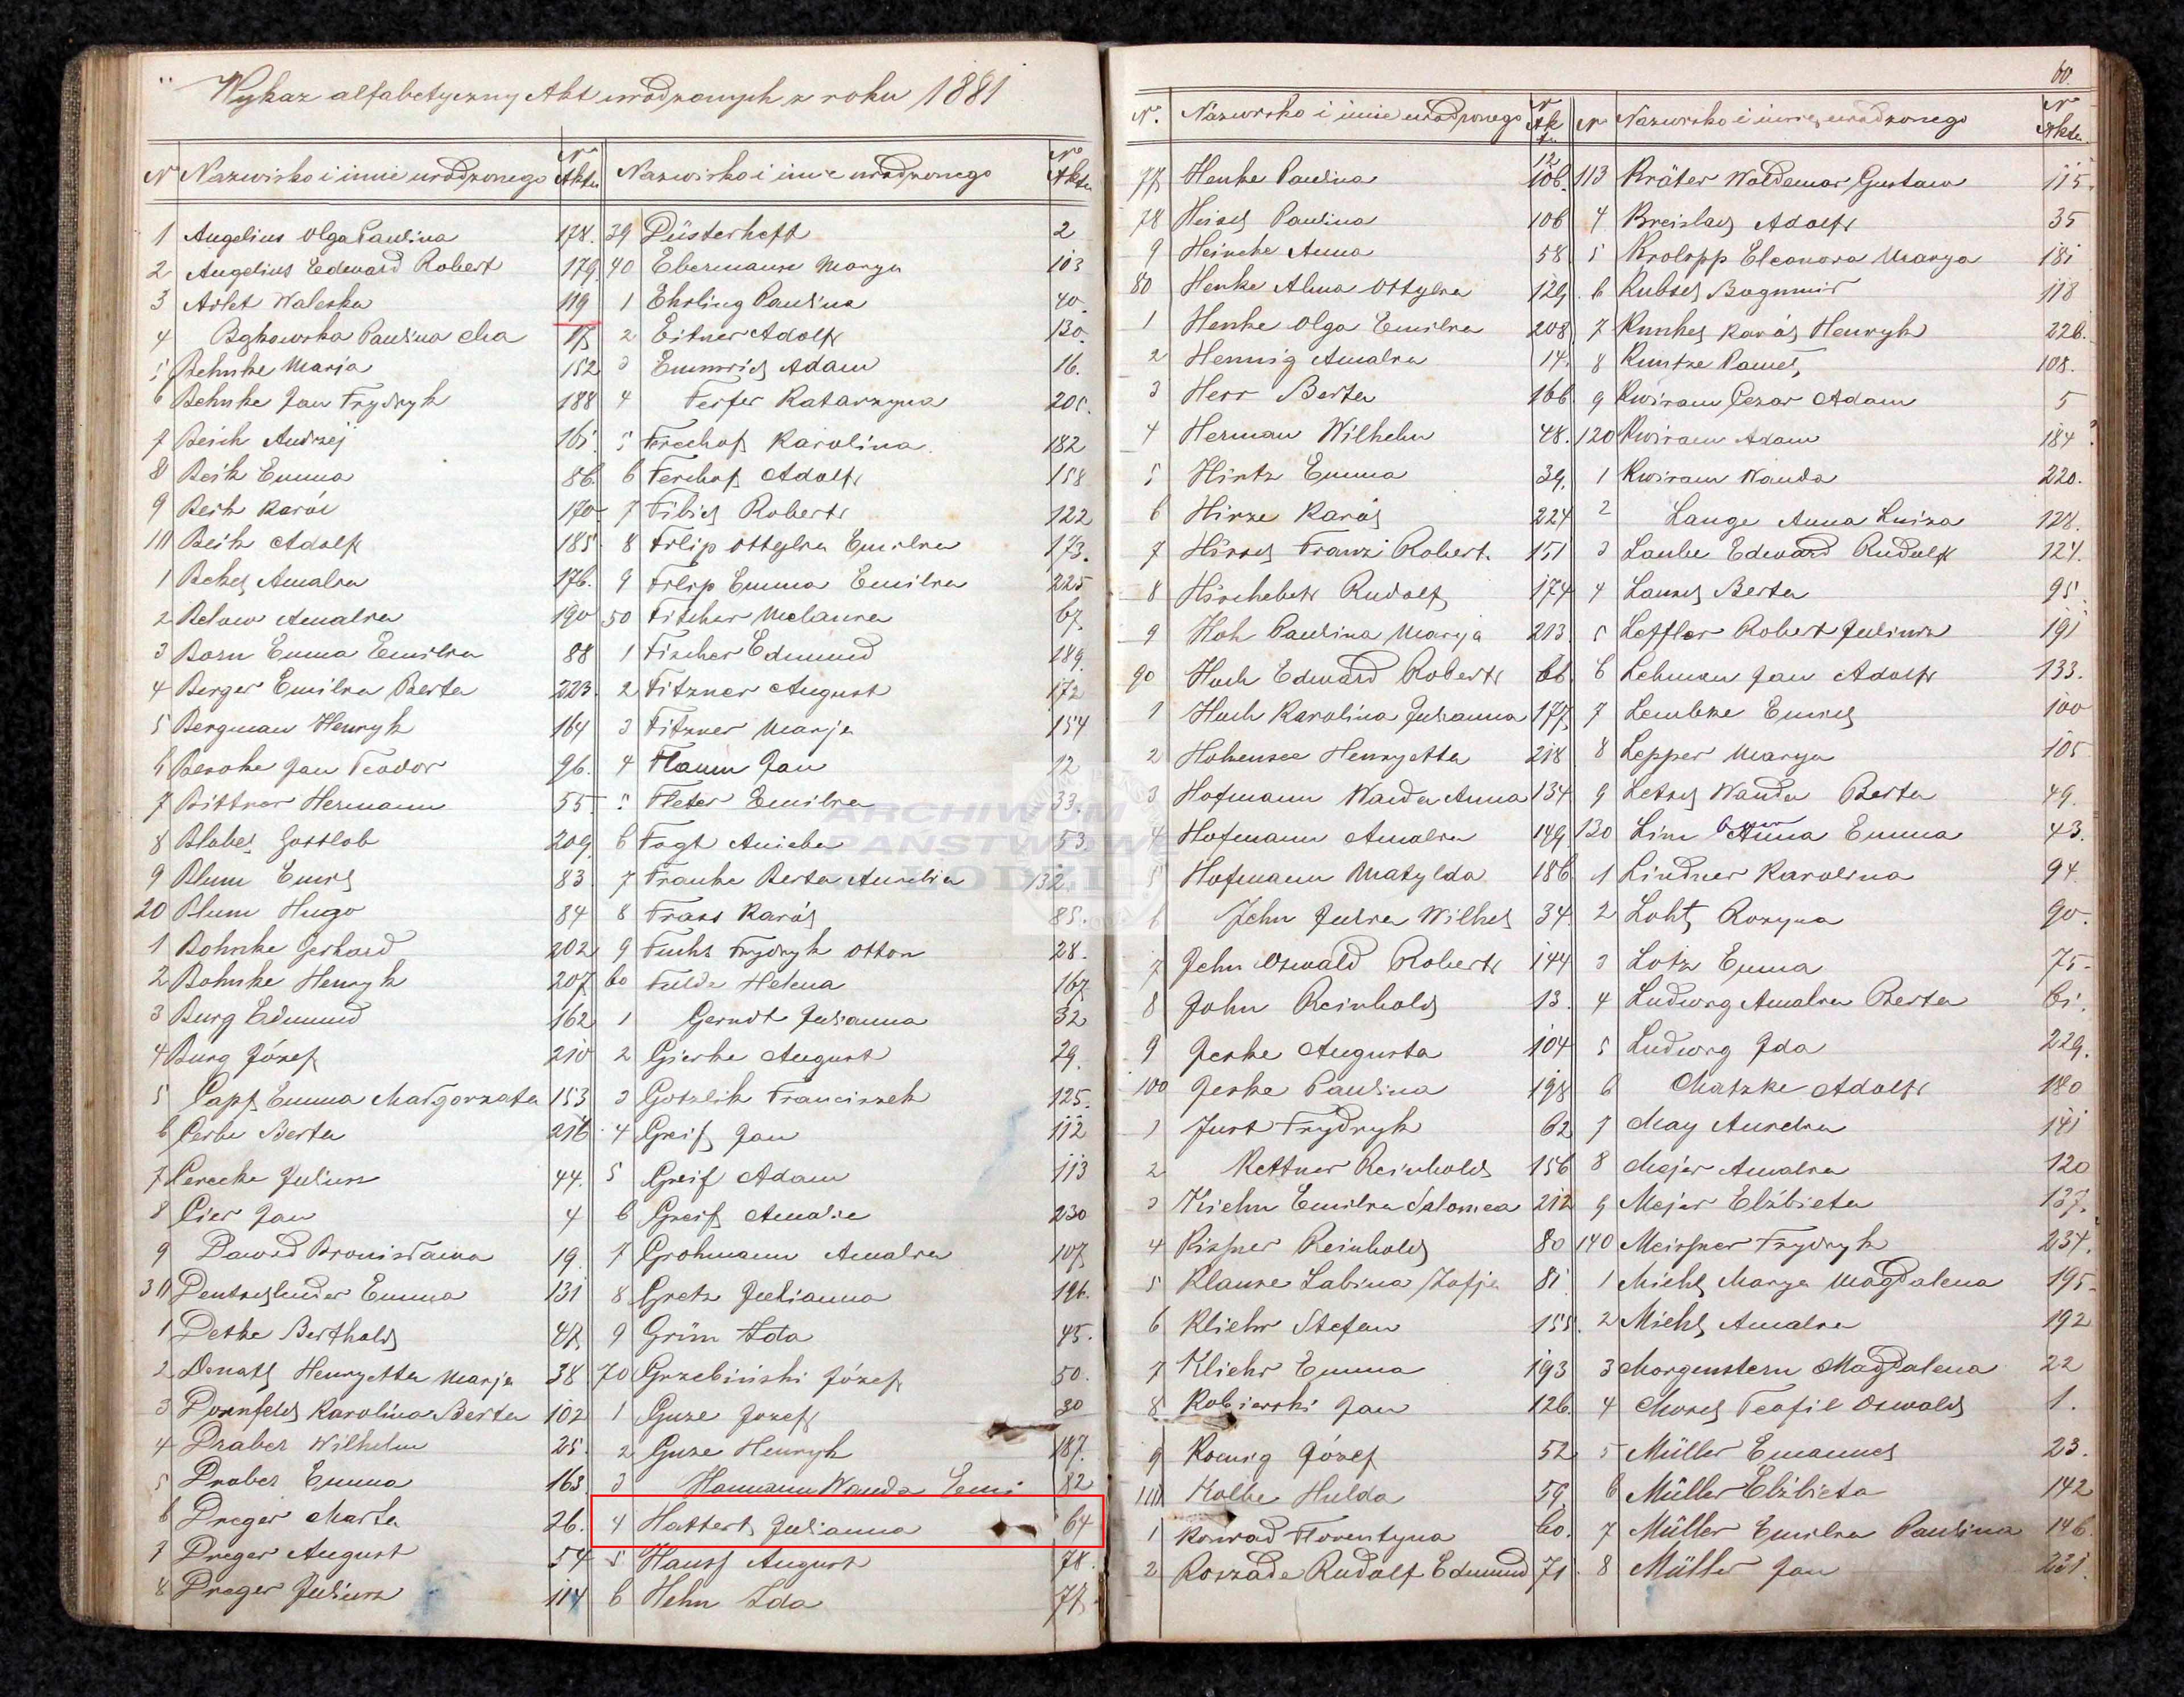 Wykaz alfabetyczny Akt urodzonych z roku 1881
N Nazwisko i imie urodzonego N Aktu
1 Angelius Olga Paulina 178.
2 Angelius Edward Robert 179
3 Arlet Waleska 119
4 Bąkowska Paulina 17
5 Behnke Marja 152
6 Behnke Jan Frydryk 188
7 Beich Andrzej
8 Beik Emma 86.
9 Beik Karól 170
10 Beik Adolf 185
1 Amalia 176.
2 Below Amalia 190
3 Born Emma Emilia 88
4 Berger Emilia Berta 223.
5 Bergman Henryk 164
6 Jan Teodor 96.
7 Bittner Hermann 55
8 Gottlob 209
9 Blum Emil 83
20 Blum Hugo 84
1 Bohnke Gerhard 202
2 Bohnke Henryk 207
3 Burg Edmund 162
4 Burg Józef 210
5 Emma Małgorzata 153
6 Berta 216
7 Juliusz 44.
8 Jan 4
9 Dawid Bronisława 19
30 Emma 131
1 Berthold 47
2 Donath Henryetta Marja 38
3 Dornfeld Karolina Berta 102
4 Wilhelm 25.
5 Emma 163
6 Dreger Marta 26.
7 Dreger August 54
8 Dreger Juliusz 114
Nazwisko i imie urodzonego N Aktu
39 Düsterheft 2
40 Ebermann Marya 103
1 Ehrling Paulina 40
2 Eitner Adolf 130
3 Emmrich Adam 16.
4 Feifer Katarzyna
5 Karolina 182
6 Adolf 158
7 Fibich Robert 122
8 Filip Ottylia Emilia 173.
9 Filip Emma Emilia 225
50 Fischer Melania 67
1 Fischer Edmund 189
2 Fitzner August 172
3 Fitzner Marja 154
4 Flaum Jan 12
5 Emilia 33.
6 Fogt Aniela 53
7 Franke Berta Aurelia 132
8 Frass Karól 85.
9 Fuchs Frydryk Otton 28.
60 Fulde Helena 167
1 Gerndt Julianna 32
2 Gierke August 29.
3 Gotzlik Franciszek 125.
4 Greif Jan 112
5 Greif Adam 113
6 Greif Amalie 230
7 Grohmann Amalia 107
8 Gretz Julianna 196.
9 Grün Ida 45.
70 Grzebiński Józef 50.
1 Guze Jozef 30
2 Guze Henryk 187.
3 Hamann Wanda Emi 82
4 Hattert Julianna 64
5 Hauff August 78.
6 Hehn Ida 77
ARCHIWUM
PAŃSTWOWE
ŁODZI
60.
N. Nazwisko i imie urodzonego N Ak
77 Henke Paulina
78 Paulina 106
9 Heincke Anna 58
80 Henke Alma Ottylia 129
1 Henke Olga Emilia 208
2 Hennig Amalia 14.
3 Herr Berta 166
4 Herman Wilhelm 48.
5 Hintz Emma 39.
6 Hinze Karól 224
7 Hirsch Franz Robert 151
8 Rudolf 174
9 Hoh Paulina Marya 213
90 Huch Edward Robert 66
1 Huch Karolina Julianna 177
2 Hohensee Henryetta 218
3 Hofmann Wanda Anna 134
4 Hofmann Amalia 149
5 Hofmann Matylda 186
6 Jehn Julia Wilhel 34
7 Jehn Oswald Robert 144
8 John Reinhold 13
9 Jeske Augusta 104
100 Jeske Paulina 198
1 Just Frydryk 62
2 Kettner Reinhold 156
3 Kiehn Emilia Salomea 212
4 Reinhold 80
5 Klause Sabina Zofja 81
6 Kliehr Stefan 155.
7 Kliehr Emma 193
8 Jan 126.
9 Koenig Józef 52
110 Kolbe Hulda 59
1 Konrad Florentyna 60.
2 Rudolf Edmund 71
N Nazwisko i imie urodzonego N Aktu
113 Kräter Woldemar Gustaw 115.
4 Kreislach Adolf 35
5 Krolopp Eleonora Marya 181
6 Bogumił 118
7 Kunkel Karól Henryk 226.
8 Kuntze Paweł 108.
9 Kwiram Cezar Adam 5
120 Kwiram Adam 184
1 Kwiram Wanda 220.
2 Lange Anna Luiza 128.
3 Laube Edward Rudolf 124.
4 Berta 95
5 Leffler Robert Juliusz 191
6 Lehman Jan Adolf 133.
7 Lembke Emil 100
8 Lepper Marya 105
9 Wanda Berta 49.
130 Anna Emma 43.
1 Lindner Karolina 94
2 Rozyna 90.
3 Lotz Emma 75
4 Ludwig Amalia Berta 61.
5 Ludwig Ida 229.
6 Matzke Adolf 180
7 May Aurelia 141
8 Mejer Amalia 120
9 Mejer Elżbieta 137.
140 Meissner Frydryk 234.
1 Miehl Marya Magdalena 195
2 Miehl Amalia 192
3 Morgenstern Magdalena 22
4 Teofil Oswald 1.
5 Müller Emanuel 23.
6 Müller Elżbieta 142
7 Müller Emilia Paulina 146.
8 Müller Jan 231.